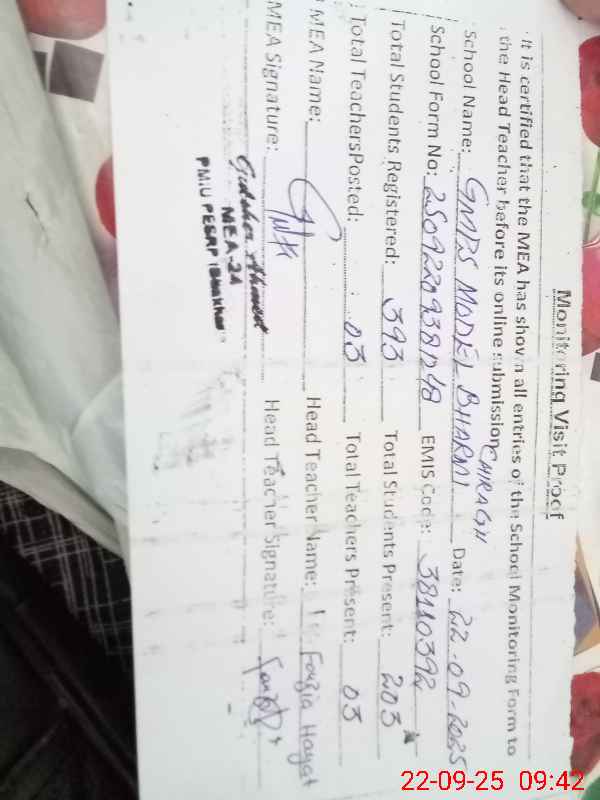 Monitoring Visit Proof
It is certified that the MEA has shown all entries of the School Monitoring Form to
the Head Teacher before its online submission
School Name: GMPS MODEL BHARMI CHIRAGH Date: 22-09-2025
School Form No: EMIS Code: 38110392
Total Students Registered: 393 Total Students Present: 203
Total TeachersPosted: 03 Total Teachers Present: 03
MEA Name: Head Teacher Name: Fouzia Hayat
MEA Signature: Head Teacher Signature:
MEA-24
PMIU PESRP
22-09-25 09:42